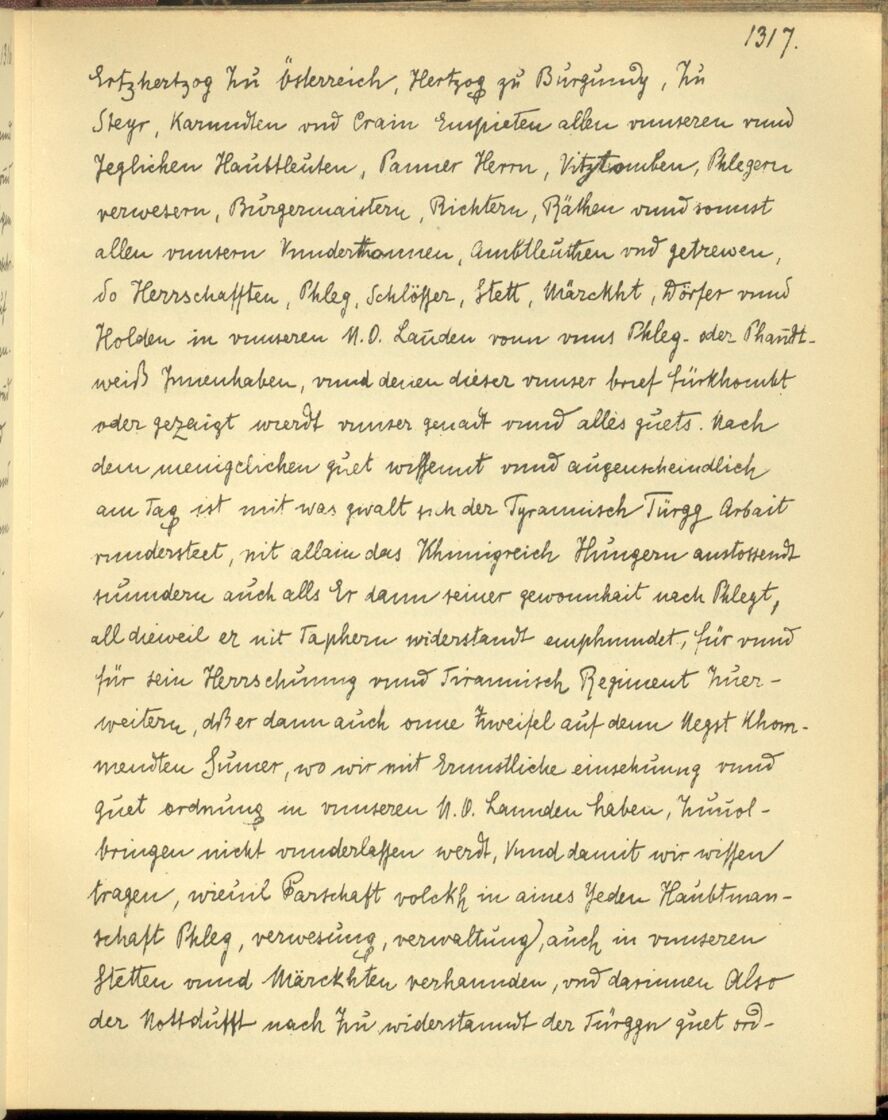 1317.
Ertzhertzog zu Österreich, Hertzog zu Burgundy, zu
Steyr, Karnndten vnd Crain Empieten allen vnnseren vnnd
Jeglichen Haubtleuten, Panner Herrn, Vitztomben, Phlegern
verwesern, Burgermaistern, Richtern, Räthen vnnd sonnst
allen vnnsern Vnnderthonnen, Ambtleuthen vnd getrewen,
So Herrschafften, Phleg, Schlösser, Stett, Märckht, Dörfer vnnd
Holden in vnnseren N. O. Lannden vonn vnns Phleg- oder Phandt-
weiß Innenhaben, vnnd denen dieser vnnser brief fürkhombt
oder gezaigt wierdt vnnser genadt vnnd alles guets. Nach
dem menigclichen guet wissennt vnnd augenscheindlich
am Tag ist mit was gwalt sich der Tyrannisch Türgg Arbait
vnndersteet, nit allain das Khunigreich Hungern anstossendt
sunndern auch alls Er dann seiner gewonnhait nach Phlegt,
all dieweil er nit Taphern widerstandt emphnndet, für vnnd
für sein Herrschunng vnnd Tirannisch Regiment Zuer-
weitern, dß er dann auch onne Zweifel auf denn Negst Khom-
mendten Sumer, wo wir nit Ernnstliche einsehunng vnnd
guet ordnung in vnnseren N. O. Lannden haben, Zuuol-
bringen nicht vnnderlassen werdt, Vnnd damit wir wissen
tragen, wieuil Barschaft volckh in aines Jeden Haubtman-
schaft Phleg, verwesung, verwaltung), auch in vnnseren
Stetten vnnd Märckhten verhannden, vnd darinnen Also
der Nottdufft nach Zu widerstanndt der Türggn guet ord-